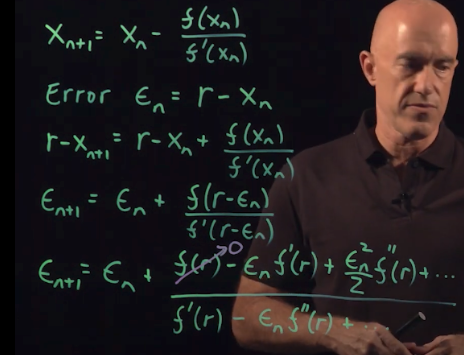 x_{n+1} = x_n - f(x_n)/f'(x_n)
Error ϵ_n = r - x_n
r - x_{n+1} = r - x_n + f(x_n)/f'(x_n)
ϵ_{n+1} = ϵ_n + f(r-ϵ_n)/f'(r-ϵ_n)
ϵ_{n+1} = ϵ_n + (f(r)→0 - ϵ_n f'(r) + ϵ_n^2/2 f''(r) + ...)/(f'(r) - ϵ_n f''(r) + ...)